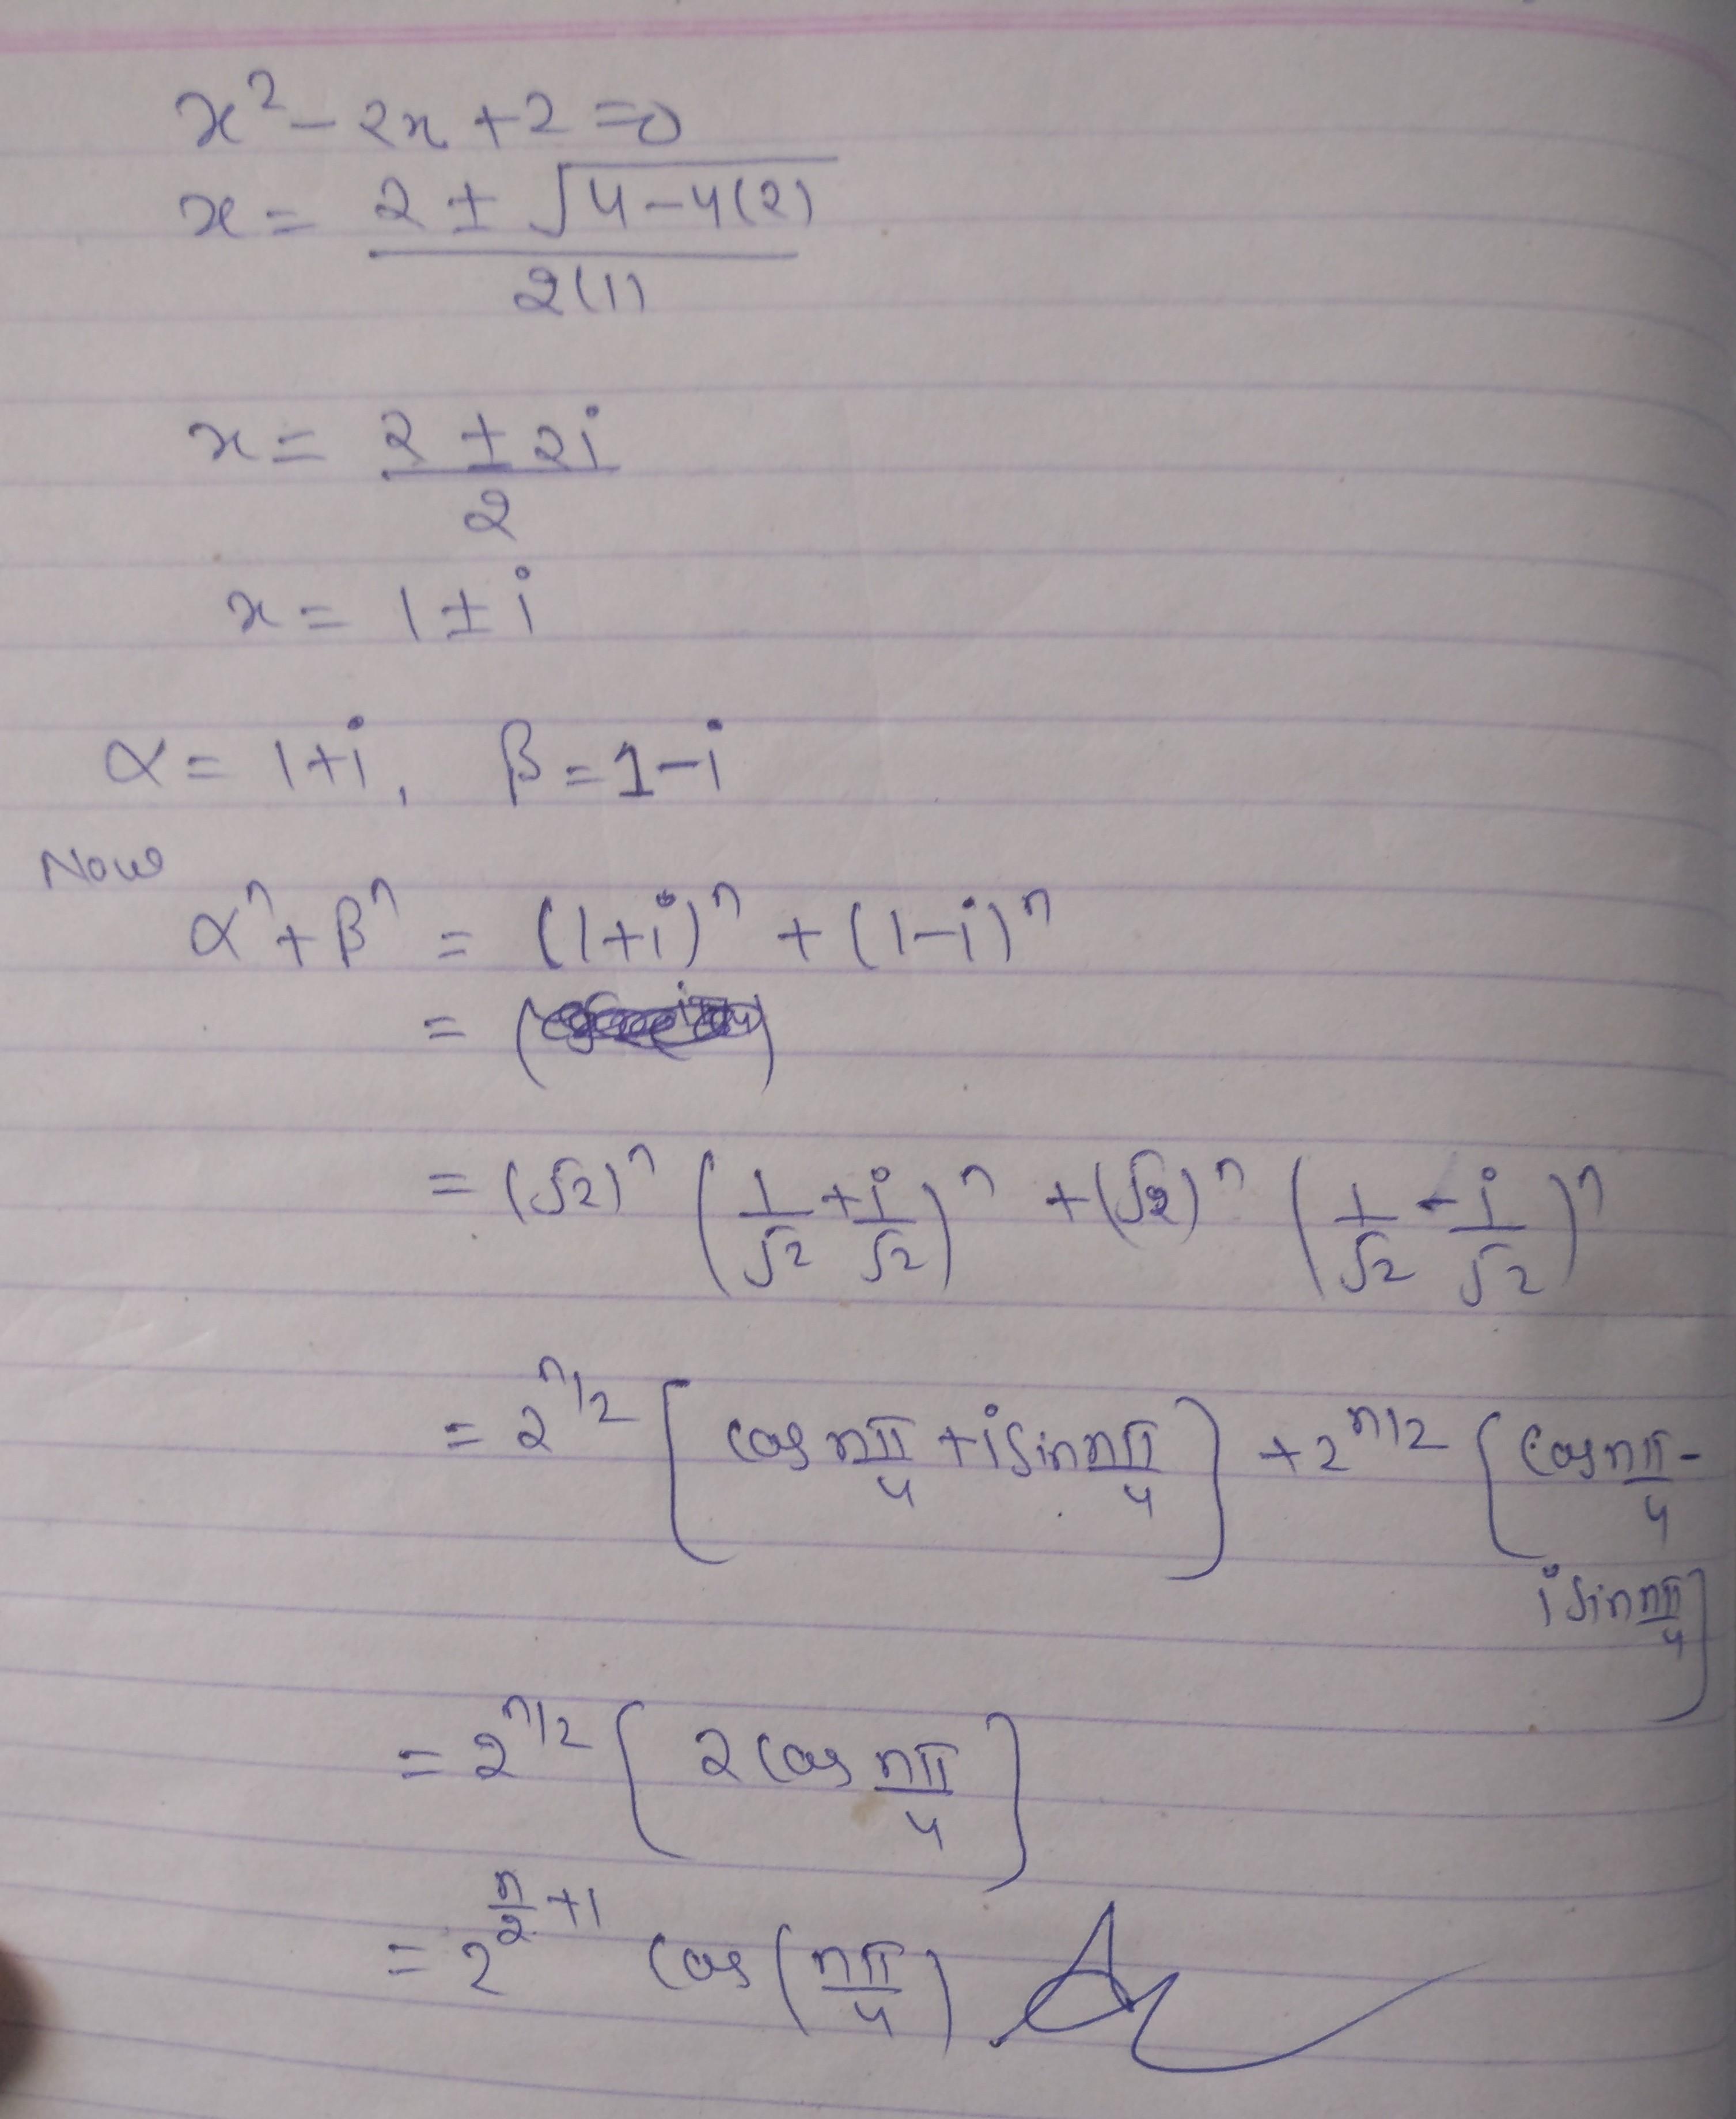 x² - 2x + 2 = 0
x = (2 ± √(4-4(2))) / 2(1)
x = (2 ± 2i) / 2
x = 1 ± i
α = 1+i, β = 1-i
Now
αⁿ + βⁿ = (1+i)ⁿ + (1-i)ⁿ
= ( )
= (√2)ⁿ (1/√2 + i/√2)ⁿ + (√2)ⁿ (1/√2 - i/√2)ⁿ
= 2^(n/2) [cos nπ/4 + i sin nπ/4] + 2^(n/2) [cos nπ/4 -
i sin nπ/4]
= 2^(n/2) [2 cos nπ/4]
= 2^(n/2 + 1) cos(nπ/4)